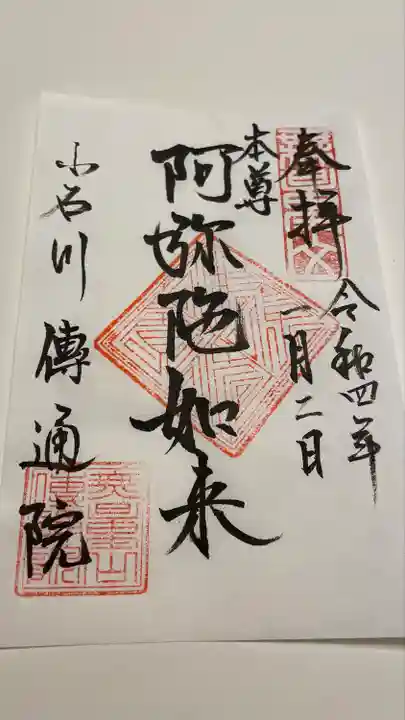 奉拝
令和四年
一月二日
本尊
阿弥陀如来
小石川傳通院